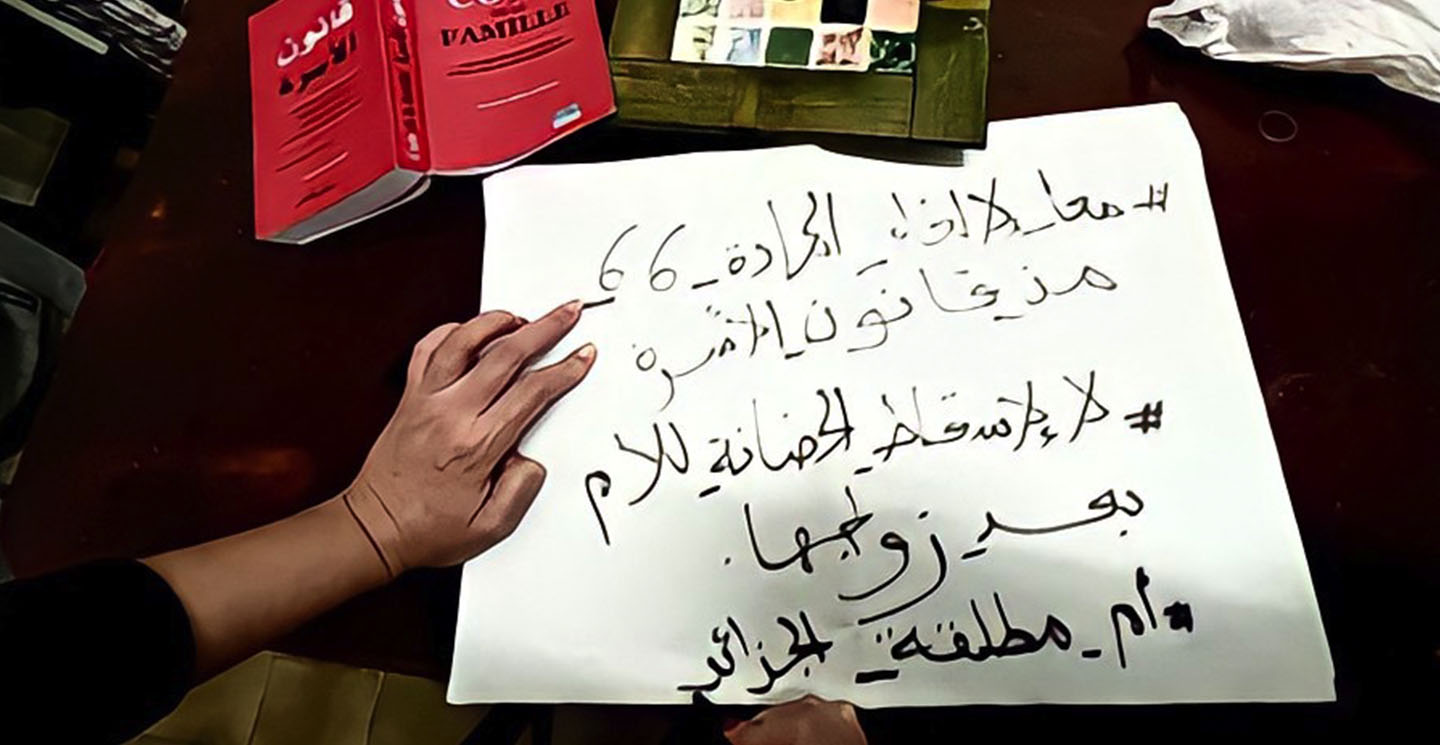 قانون
الأسرة
CODE
FAMILLE
#معا_لإلغاء_المادة_66_
من_قانون_الأسرة
#لا_لإسقاط_الحضانة_للأم
بعد_زواجها.
#أم_مطلقة_الجزائر